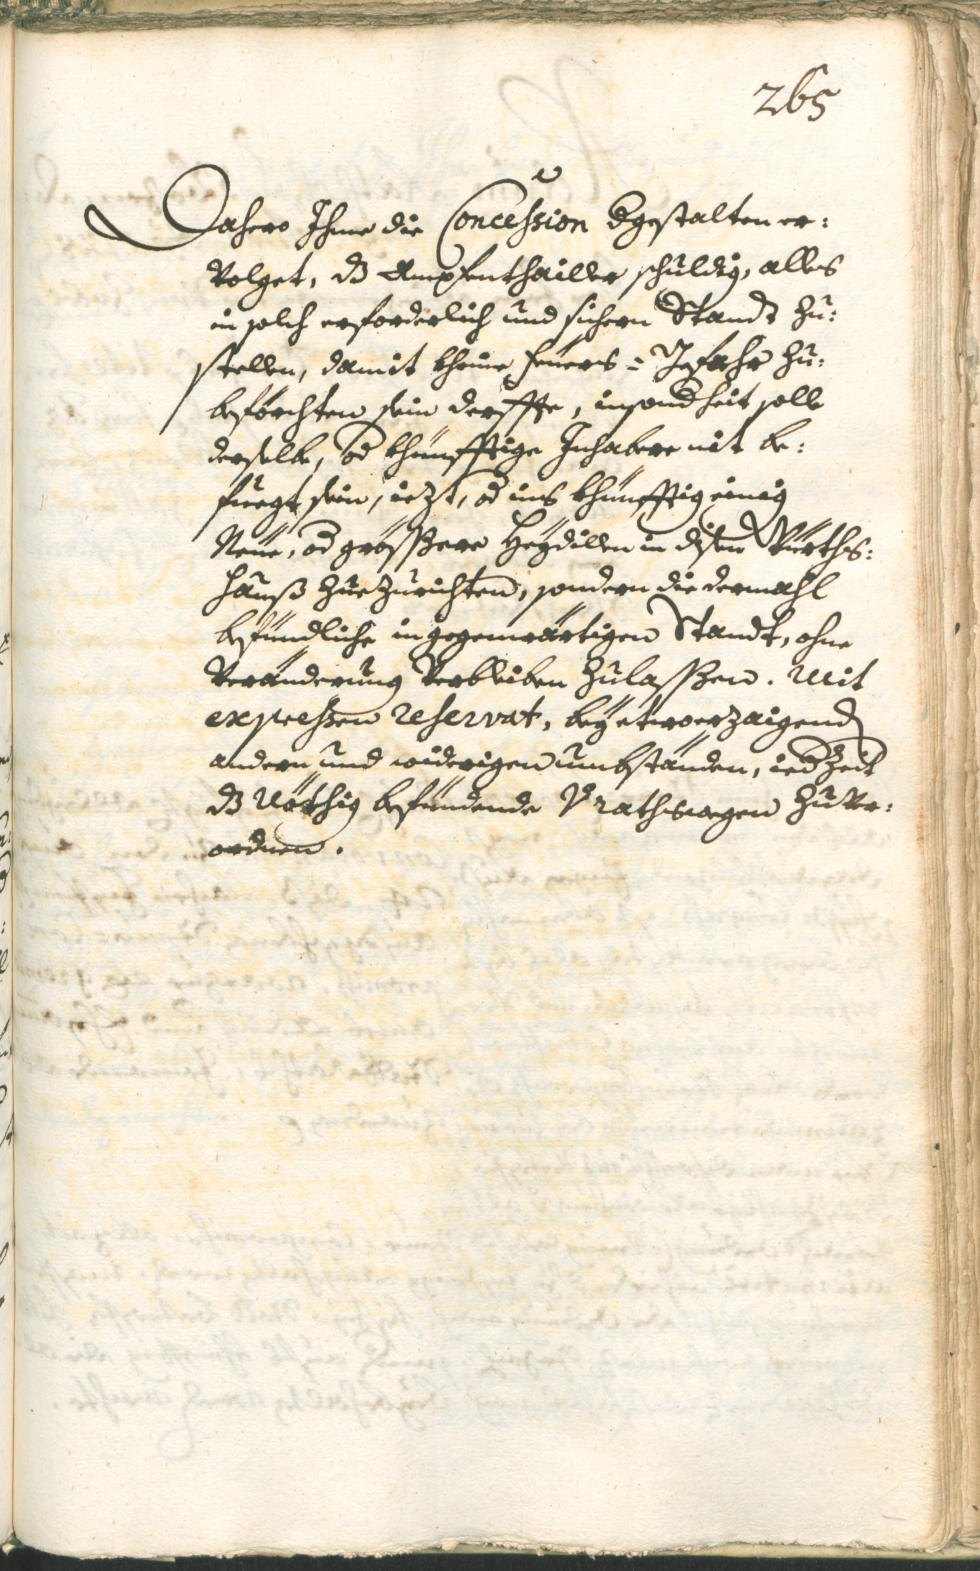 265
Dahero Ihme die Concession dgestalten er:
volget, dß Ampfenthailler schuldig, alles
in solch erforderlich und sichern Standt zu:
stellen, damit kheine feuers=Gefahr zu:
beförchten sein derffte, insondheit solle
derselbe, od khünfftige Inhabere nit be:
fuegt sein, iezt, od ins khünfftig einig
Neue, od grössere in disen Würths:
hauß zuezurichten, sondern die dermahl
befündliche in gegenwärtigen Standt, ohne
Veränderung Verbleiben zulassen. Mit
expressen reservat, bey etwo erzaigend
andern und widerigen umbständen, ied Zeit
dß Nöthig befündende Rathswegen zu Ver:
ordnen.